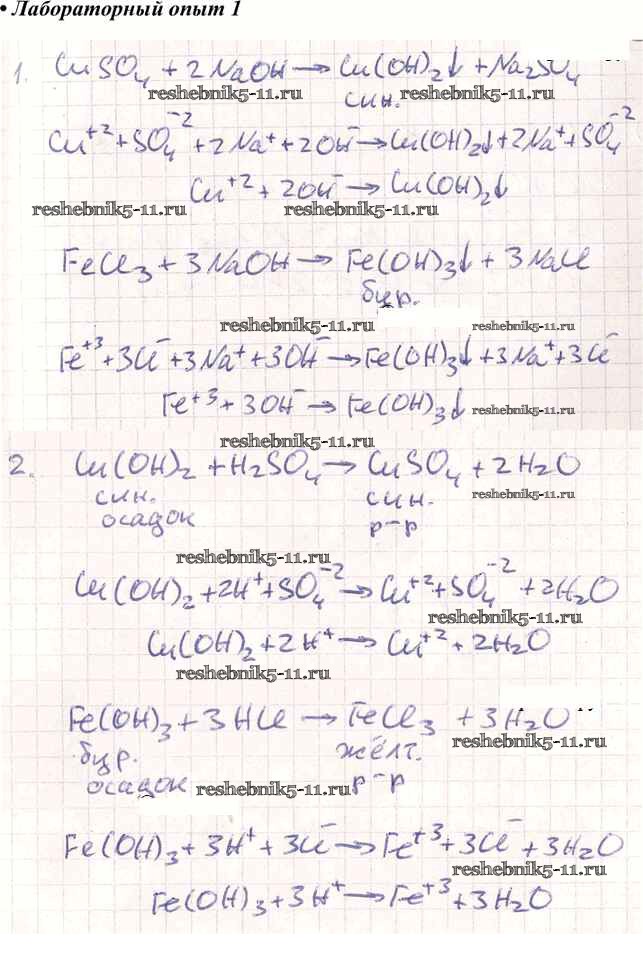 • Лабораторный опыт 1
1. CuSO₄ + 2NaOH → Cu(OH)₂↓ + Na₂SO₄
reshebnik5-11.ru син. reshebnik5-11.ru
Cu⁺² + SO₄⁻² + 2Na⁺ + 2OH⁻ → Cu(OH)₂↓ + 2Na⁺ + SO₄⁻²
Cu⁺² + 2OH⁻ → Cu(OH)₂↓
reshebnik5-11.ru reshebnik5-11.ru
FeCl₃ + 3NaOH → Fe(OH)₃↓ + 3NaCl
бур.
reshebnik5-11.ru reshebnik5-11.ru
Fe⁺³ + 3Cl⁻ + 3Na⁺ + 3OH⁻ → Fe(OH)₃↓ + 3Na⁺ + 3Cl⁻
Fe⁺³ + 3OH⁻ → Fe(OH)₃↓ reshebnik5-11.ru
reshebnik5-11.ru
2. Cu(OH)₂ + H₂SO₄ → CuSO₄ + 2H₂O
син. син. reshebnik5-11.ru
осадок р-р
reshebnik5-11.ru
Cu(OH)₂ + 2H⁺ + SO₄⁻² → Cu⁺² + SO₄⁻² + 2H₂O
reshebnik5-11.ru
Cu(OH)₂ + 2H⁺ → Cu⁺² + 2H₂O
reshebnik5-11.ru
Fe(OH)₃ + 3HCl → FeCl₃ + 3H₂O
бур. жёлт. reshebnik5-11.ru
осадок reshebnik5-11.ru р-р
Fe(OH)₃ + 3H⁺ + 3Cl⁻ → Fe⁺³ + 3Cl⁻ + 3H₂O
reshebnik5-11.ru
Fe(OH)₃ + 3H⁺ → Fe⁺³ + 3H₂O